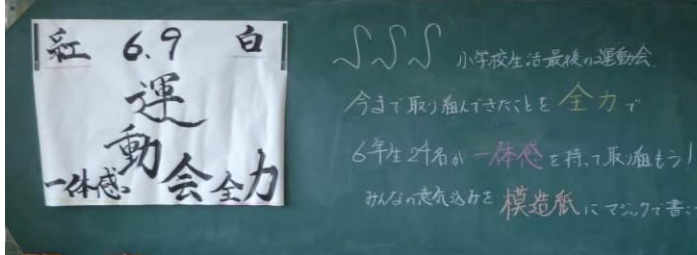 紅 6.9 白
運
動
会
一体感 全力
SSS 小学校生活最後の運動会、
今まで取り組んできたことを全力で
6年生24名が一体感を持って取り組もう!
みんなの意気込みを模造紙にマジックで書